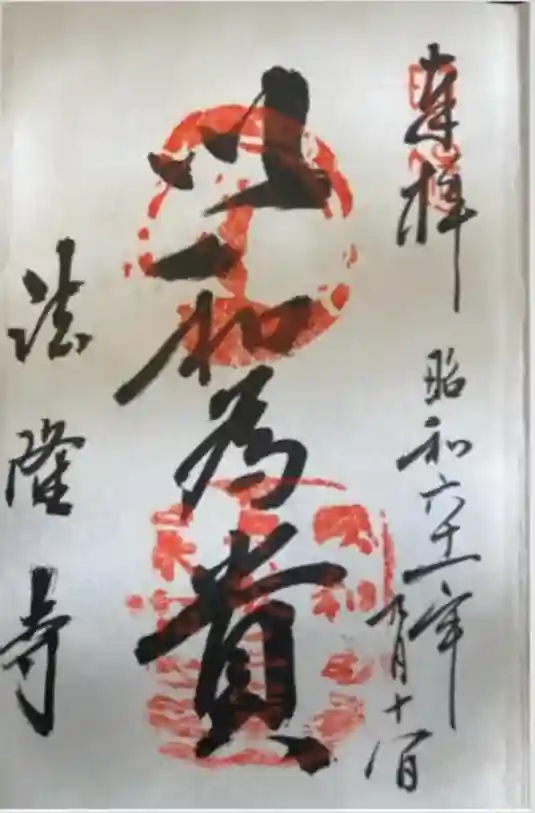 奉拝 昭和六十一年九月十一日
以和為貴
法隆寺